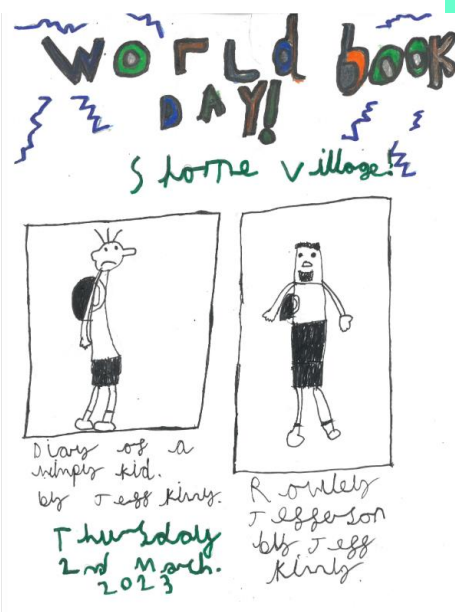 WORLD BOOK
DAY!
Shorne Village!
Diary of a
wimpy kid.
by Jeff Kinny.
Thursday
2nd March.
2023
Rowley
Jefferson
by Jeff
Kinny.